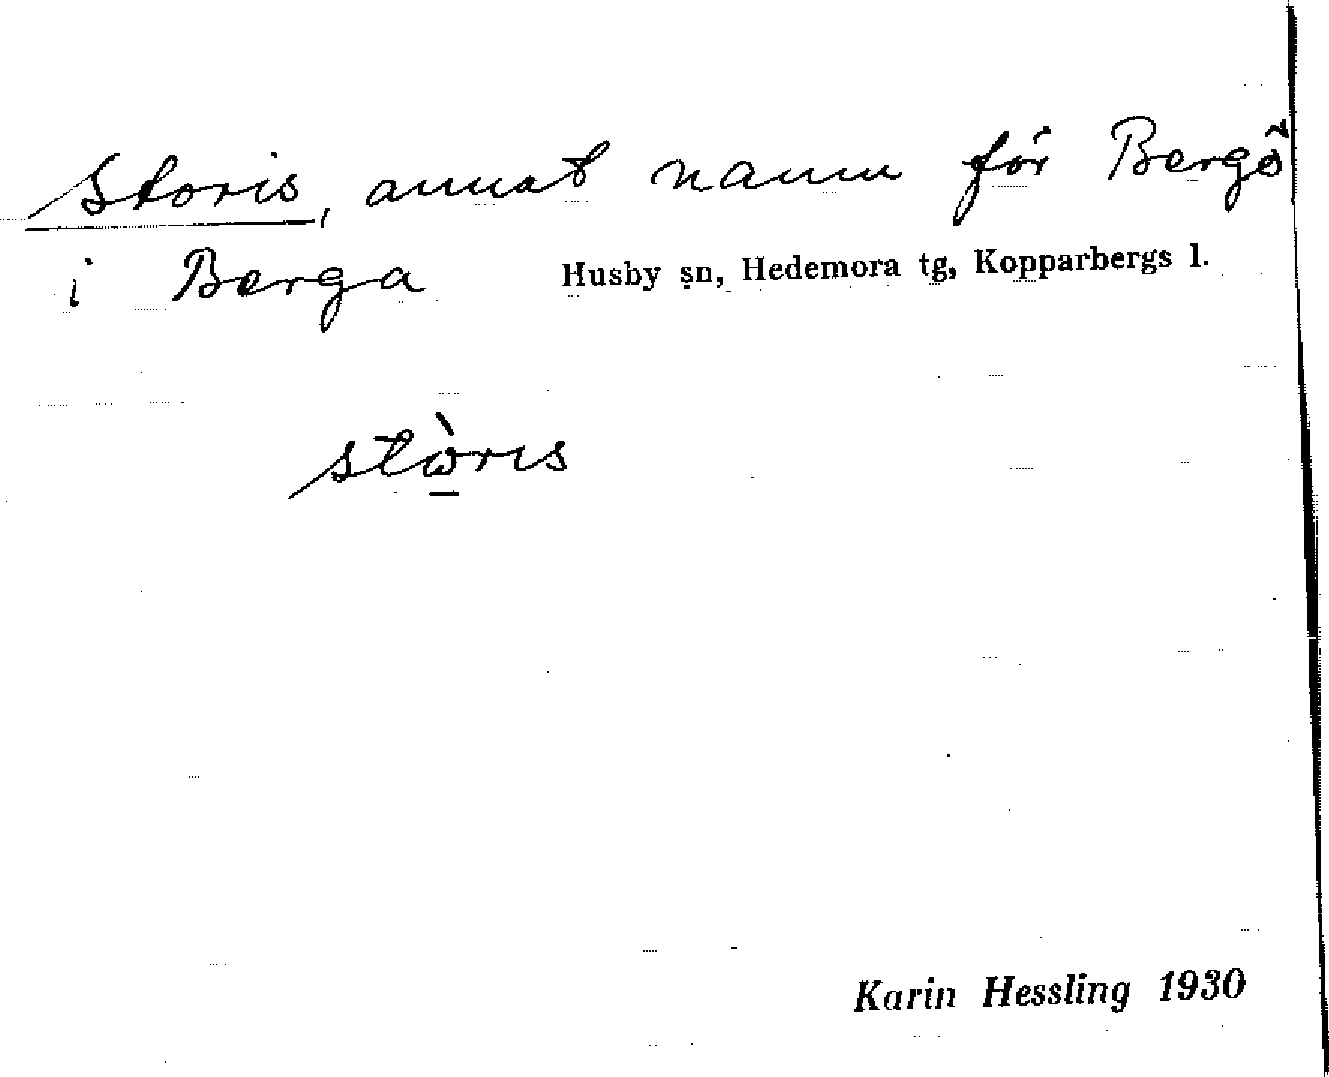 Storis, annat namn för Bergö
i Berga Husby sn, Hedemora tg, Kopparbergs l.
stὼ̱rıs
Karin Hessling 1930